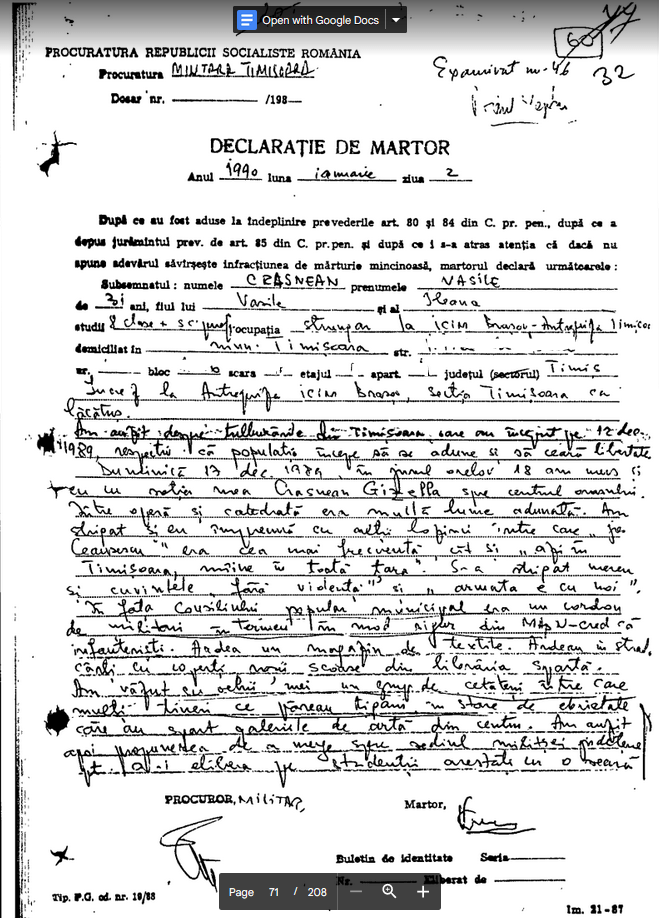 Open with Google Docs
60
PROCURATURA REPUBLICII SOCIALISTE ROMÂNIA
Procuratura MILITARĂ TIMIȘOARA
Examinat 46
32
Dosar nr. /198
DECLARAȚIE DE MARTOR
Anul 1990 luna ianuarie ziua 2
După ce au fost aduse la îndeplinire prevederile art. 80 și 84 din C. pr. pen., după ce a
depus jurămîntul prev. de art. 85 din C. pr.pen. și după ce i s-a atras atenția că dacă nu
spune adevărul săvîrșește infracțiunea de mărturie mincinoasă, martorul declară următoarele :
Subsemnatul : numele CRĂSNEAN prenumele VASILE
de ani, fiul lui Vasile și al Ileana
studii 8 clase + sc. prof. ocupația strungar la ICIM Brașov-Antrepriza Timișoara
domiciliat în mun. Timișoara str.
nr. bloc scara etajul apart. județul (sectorul) Timiș
Lucrez la Antrepriza ICIM Brașov, secția Timișoara ca
lăcătuș.
Am auzit despre tulburările din Timișoara, care au început pe dec.
1989, respectiv că populația începe să se adune și să ceară libertate
Duminică 17 dec. 1989, în jurul orelor 18 am mers și
eu cu soția mea Crasnean Gizella spre centrul orașului.
Între operă și catedrală era multă lume adunată. Am
strigat și eu împreună cu alții lozinci între care „jos
Ceaușescu" era cea mai frecventă, cît și „azi în
Timișoara, mîine în toată țara". S-a strigat mereu
și cuvintele „fără violență" și „armata e cu noi".
În fața Consiliului popular municipal era un cordon
de militari în termen în mod sigur din MApN-cred că
infanteriști. Ardea un magazin de textile. Ardeau în stradă
cărți cu coperți roșii scoase din librăria spartă.
Am văzut cu ochii mei un grup de cetățeni între care
mulți tineri ce păreau țigani în stare de ebrietate
care au spart galeriile de artă din centru. Am auzit
apoi propunerea de a merge spre sediul miliției județene
pt. a-i elibera pe studenții arestați cu o seară
PROCUROR, MILITAR,
Martor,
Buletin de identitate Seria
Nr. Eliberat de
Tip. P.G. od. nr. 19/88
Im. 21-87
Page 71 / 208